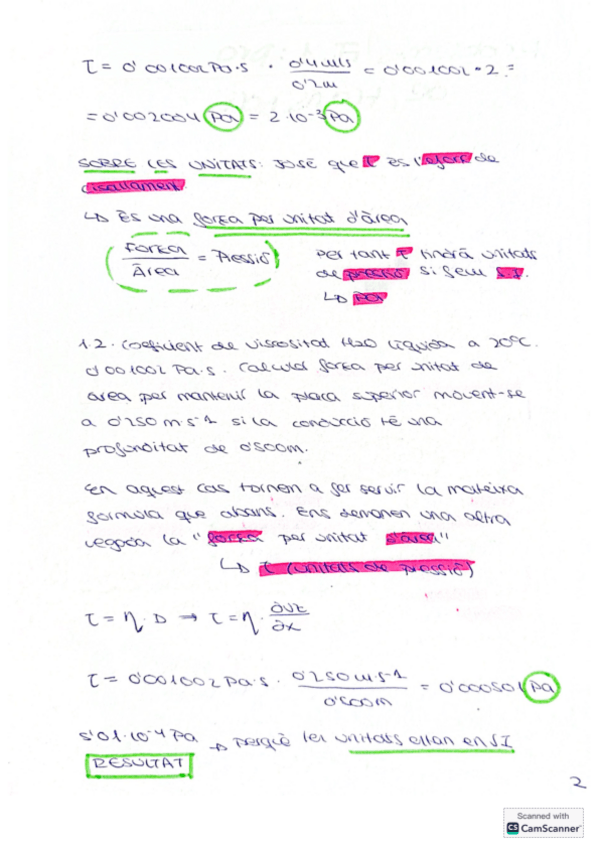 τ = 0'001002 Pa·s · 0'4 m/s / 0'2m = 0'001002 · 2 =
= 0'002004 Pa = 2·10⁻³ Pa
SOBRE LES UNITATS: Jo sé que τ és l'esforç de
cisallament
↳ És una força per unitat d'àrea
Força / Àrea = Pressió
Per tant τ tindrà unitats
de pressió si fem S.I.
↳ Pa
1.2. Coeficient de viscositat H2O líquida a 20ºC.
0'001002 Pa·s. Calcular força per unitat de
àrea per mantenir la placa superior movent-se
a 0'250 m·s⁻¹ si la conducció té una
profunditat de 0'500m.
En aquest cas tornem a fer servir la mateixa
fórmula que abans. Ens demanen una altra
vegada la "força per unitat d'àrea"
↳ τ (unitats de pressió)
τ = η · D → τ = η · ∂vz / ∂x
τ = 0'001002 Pa·s · 0'250 m·s⁻¹ / 0'500m = 0'000501 Pa
5'01·10⁻⁴ Pa → perquè les unitats estan en SI
RESULTAT
2
Scanned with
CS CamScanner